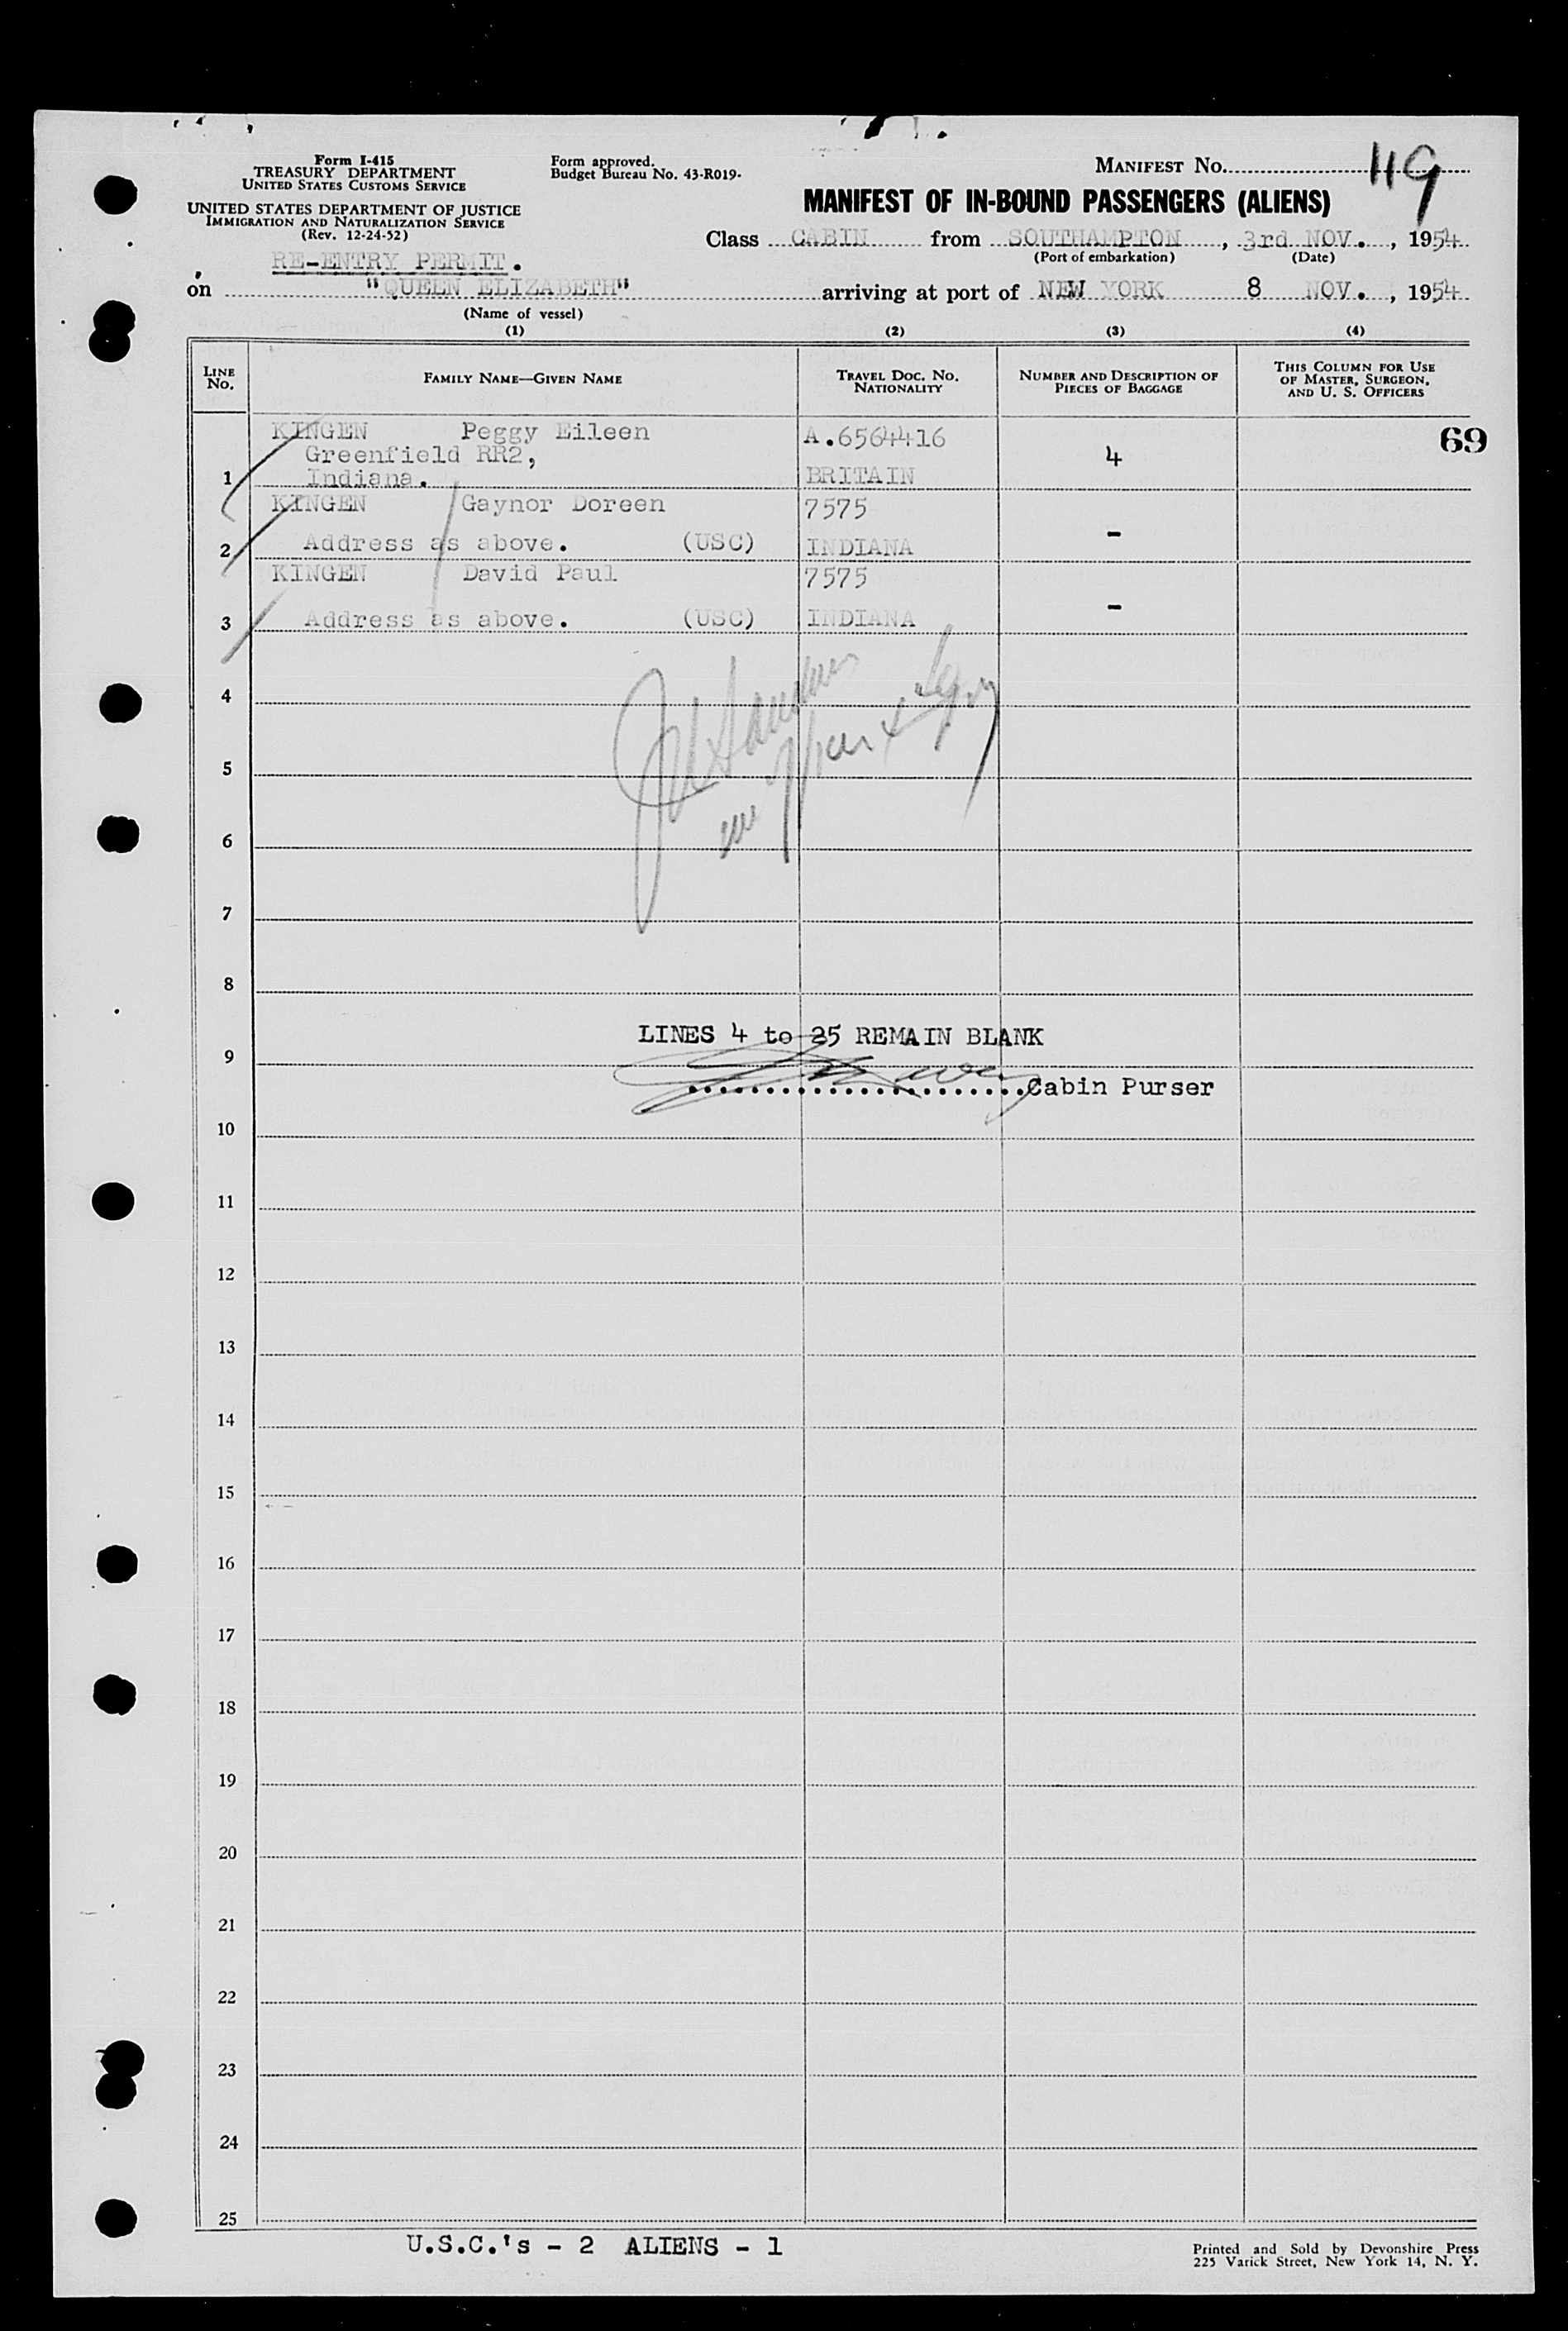 Form I-415
TREASURY DEPARTMENT
UNITED STATES CUSTOMS SERVICE
UNITED STATES DEPARTMENT OF JUSTICE
IMMIGRATION AND NATURALIZATION SERVICE
(Rev. 12-24-52)
Form approved.
Budget Bureau No. 43-R019-
MANIFEST No. 119
MANIFEST OF IN-BOUND PASSENGERS (ALIENS)
Class CABIN from SOUTHAMPTON, 3rd NOV., 1954
(Port of embarkation) (Date)
RE-ENTRY PERMIT.
on "QUEEN ELIZABETH" arriving at port of NEW YORK 8 NOV., 1954
(Name of vessel)
(1) (2) (3) (4)
LINE No. FAMILY NAME—GIVEN NAME TRAVEL DOC. No. NATIONALITY NUMBER AND DESCRIPTION OF PIECES OF BAGGAGE THIS COLUMN FOR USE OF MASTER, SURGEON, AND U. S. OFFICERS
KINGEN Peggy Eileen A.6564416 4 69
Greenfield RR2,
1 Indiana. BRITAIN
KINGEN Gaynor Doreen 7575 -
2 Address as above. (USC) INDIANA
KINGEN David Paul 7575 -
3 Address as above. (USC) INDIANA
4
5
6
7
8
LINES 4 to 25 REMAIN BLANK
9
Cabin Purser
10
11
12
13
14
15
16
17
18
19
20
21
22
23
24
25
U.S.C.'s - 2 ALIENS - 1
Printed and Sold by Devonshire Press
225 Varick Street, New York 14, N. Y.